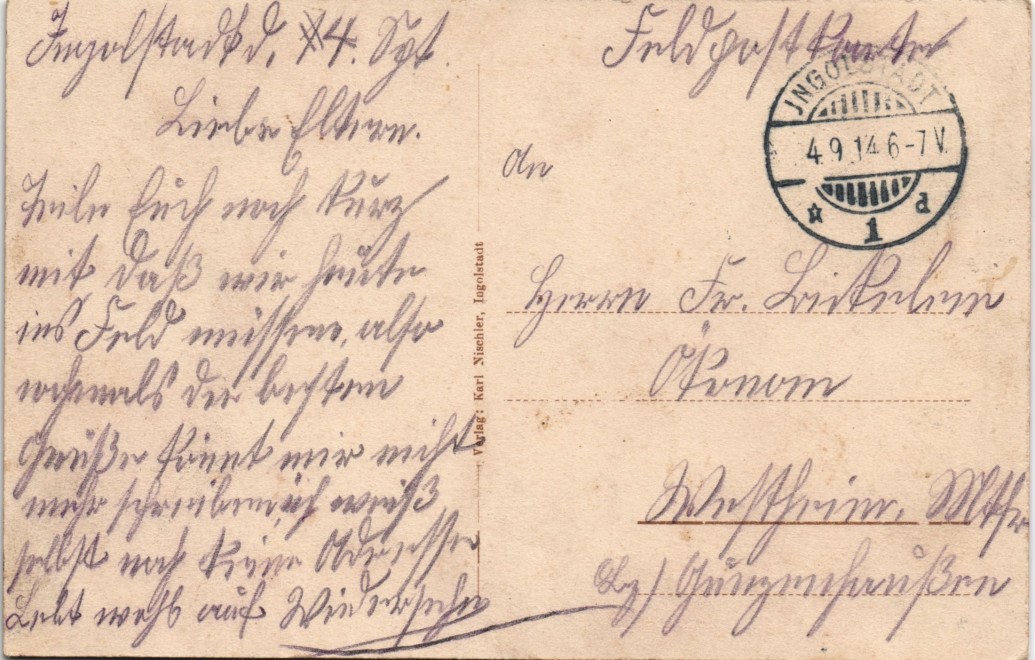 Ingolstadt d. 4. Spt.
Liebe Eltern.
Teile Euch noch kurz
mit daß wir heute
ins Feld müssen, also
nochmals die besten
Grüße könnt mir nicht
mehr schreiben, ich weiß
selbst noch keine Adresse
Lebt wohl auf Wiedersehn
Feldpostkarte
INGOLSTADT
4.9.14 6-7 V.
1 d
An
Herrn Fr.
Ökonom
Westheim, Mtfr
Bz) Gunzenhaußen
Verlag: Karl Nischler, Ingolstadt